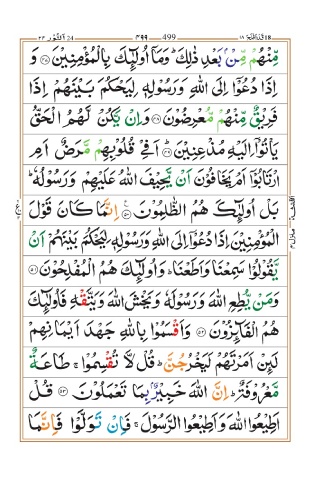 النور ٢٤ ٤٩٩ 499 قد افلح ١٨
مِّنْهُمْ مِّنْۢ بَعْدِ ذٰلِكَ ؕ وَمَاۤ اُولٰٓئِكَ بِالْمُؤْمِنِيْنَ ۝٤٧ وَ
اِذَا دُعُوْۤا اِلَى اللّٰهِ وَرَسُوْلِهٖ لِيَحْكُمَ بَيْنَهُمْ اِذَا
فَرِيْقٌ مِّنْهُمْ مُّعْرِضُوْنَ ۝٤٨ وَاِنْ يَّكُنْ لَّهُمُ الْحَقُّ
يَاْتُوْۤا اِلَيْهِ مُذْعِنِيْنَ ۝٤٩ اَفِيْ قُلُوْبِهِمْ مَّرَضٌ اَمِ
ارْتَابُوْۤا اَمْ يَخَافُوْنَ اَنْ يَّحِيْفَ اللّٰهُ عَلَيْهِمْ وَرَسُوْلُهٗ ؕ
بَلْ اُولٰٓئِكَ هُمُ الظّٰلِمُوْنَ ۝٥٠ اِنَّمَا كَانَ قَوْلَ
الْمُؤْمِنِيْنَ اِذَا دُعُوْۤا اِلَى اللّٰهِ وَرَسُوْلِهٖ لِيَحْكُمَ بَيْنَهُمْ اَنْ
يَّقُوْلُوْا سَمِعْنَا وَاَطَعْنَا ؕ وَاُولٰٓئِكَ هُمُ الْمُفْلِحُوْنَ ۝٥١
وَمَنْ يُّطِعِ اللّٰهَ وَرَسُوْلَهٗ وَيَخْشَ اللّٰهَ وَيَتَّقْهِ فَاُولٰٓئِكَ
هُمُ الْفَآئِزُوْنَ ۝٥٢ وَاَقْسَمُوْا بِاللّٰهِ جَهْدَ اَيْمَانِهِمْ
لَئِنْ اَمَرْتَهُمْ لَيَخْرُجُنَّ ؕ قُلْ لَّا تُقْسِمُوْا ۚ طَاعَةٌ
مَّعْرُوْفَةٌ ؕ اِنَّ اللّٰهَ خَبِيْرٌۢ بِمَا تَعْمَلُوْنَ ۝٥٣ قُلْ
اَطِيْعُوا اللّٰهَ وَاَطِيْعُوا الرَّسُوْلَ ۚ فَاِنْ تَوَلَّوْا فَاِنَّمَا